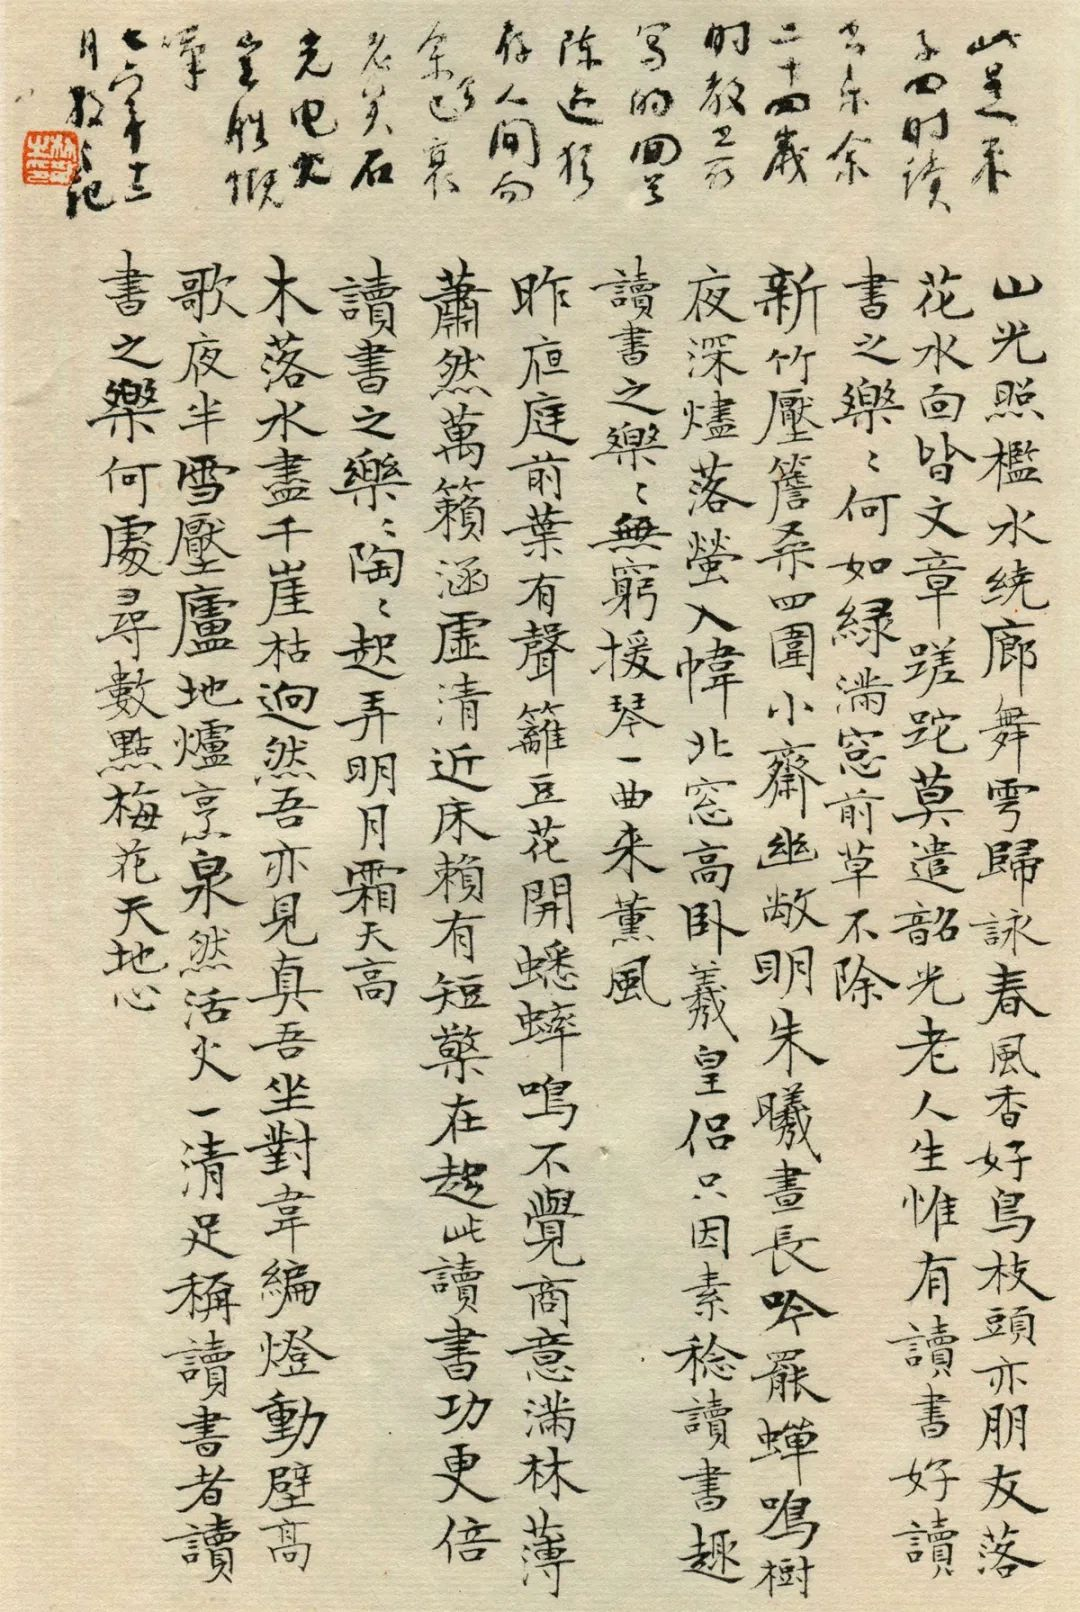 此是朱
子四时读
书乐余
二十四岁
时教
写的回首
陈迹犹
存人间而
余已衰
老矣石
光电火
岂胜慨
嘆
七六年十二
月散之记
山光照檻水繞廊舞雩歸詠春風香好鳥枝頭亦朋友落
花水面皆文章蹉跎莫遣韶光老人生惟有讀書好讀
書之樂〻何如緑滿窓前草不除
新竹壓簷桑四圍小齋幽敞明朱曦晝長吟罷蟬鳴樹
夜深燼落螢入幃北窓高卧羲皇侶只因素稔讀書趣
讀書之樂〻無窮援琴一曲来薰風
昨夜庭前葉有聲籬豆花開蟋蟀鳴不覺商意滿林薄
蕭然萬籟涵虛清近床賴有短檠在起此讀書功更倍
讀書之樂〻陶〻起弄明月霜天高
木落水盡千崖枯迥然吾亦見真吾坐對韋編燈動壁高
歌夜半雪壓廬地爐烹泉然活火一清足稱讀書者讀
書之樂何處尋數點梅花天地心